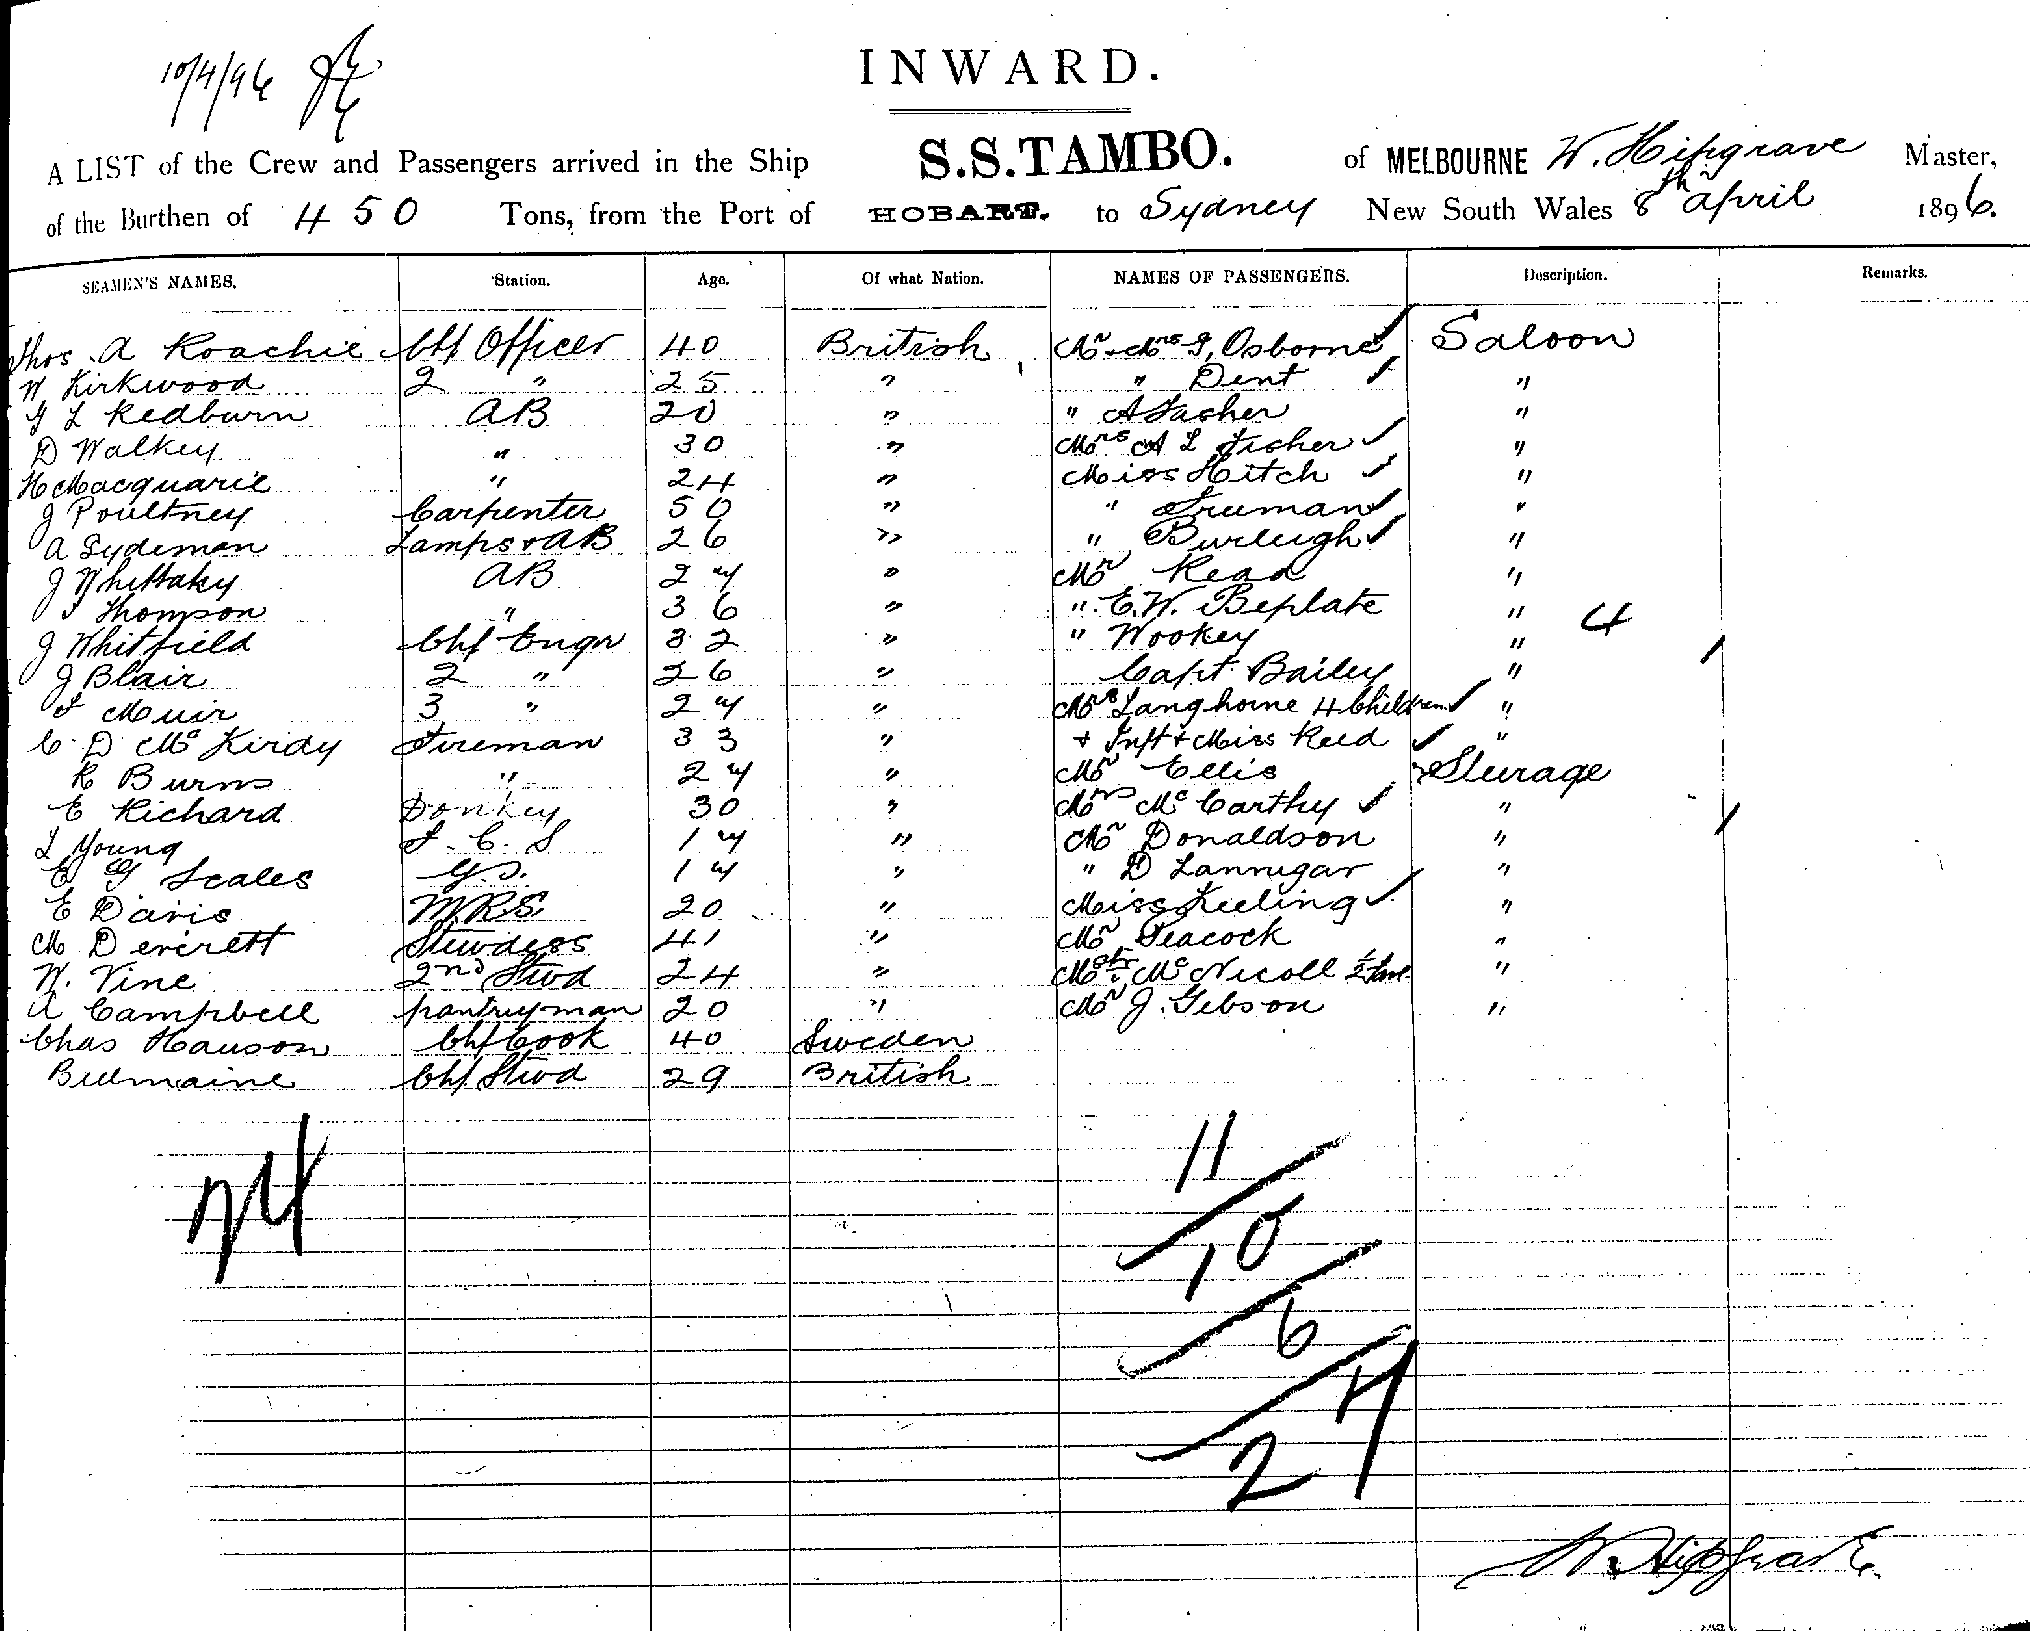 10/4/96
INWARD.
A LIST of the Crew and Passengers arrived in the Ship S.S. TAMBO. of MELBOURNE W. Hipgrave Master,
of the Burthen of 450 Tons, from the Port of HOBART. to Sydney New South Wales 8th April 1896.
SEAMEN'S NAMES. Station. Age. Of what Nation. NAMES OF PASSENGERS. Description. Remarks.
Thos. A Roachie Chf Officer 40 British Mr & Mrs Osborne Saloon
W Kirkwood 2 " 25 " " Dent "
L Redburn AB 20 " " A "
D Walkey " 30 " Mrs A L Fisher "
H Macquarie " 24 " Miss Hitch "
J Poultney Carpenter 50 " " Truman "
A Sydeman Lamps & AB 26 " " Burleigh "
J Whittaky AB 24 " Mr Read "
Thomson " 36 " " E.W. Beplate " 4
J Whitfield Chf Engr 32 " " Wookey "
J Blair 2 " 26 " Capt. Bailey "
Muir 3 " 24 " Mrs Langhorne 4 Children "
C. D McKirdy Fireman 33 " + Inft + Miss Reed "
R Burns " 24 " Mr Ellis Sturage
E Richard Donkey 30 " Mrs McCarthy "
L Young F. C. S 14 " Mr Donaldson "
E G Scales G.S. 14 " " D Lannigar "
E Davis M.R.S. 20 " Miss Keeling "
M Deverett Stewdess 41 " Mr Peacock "
W. Vine 2nd Stwd 24 " McNicoll "
A Campbell pantryman 20 " Mr J. Gibson "
Chas Hauson Chf Cook 40 Sweden
Bulmaine Chf Stwd 29 British
24
11
10
6
27
W. Hipgrave